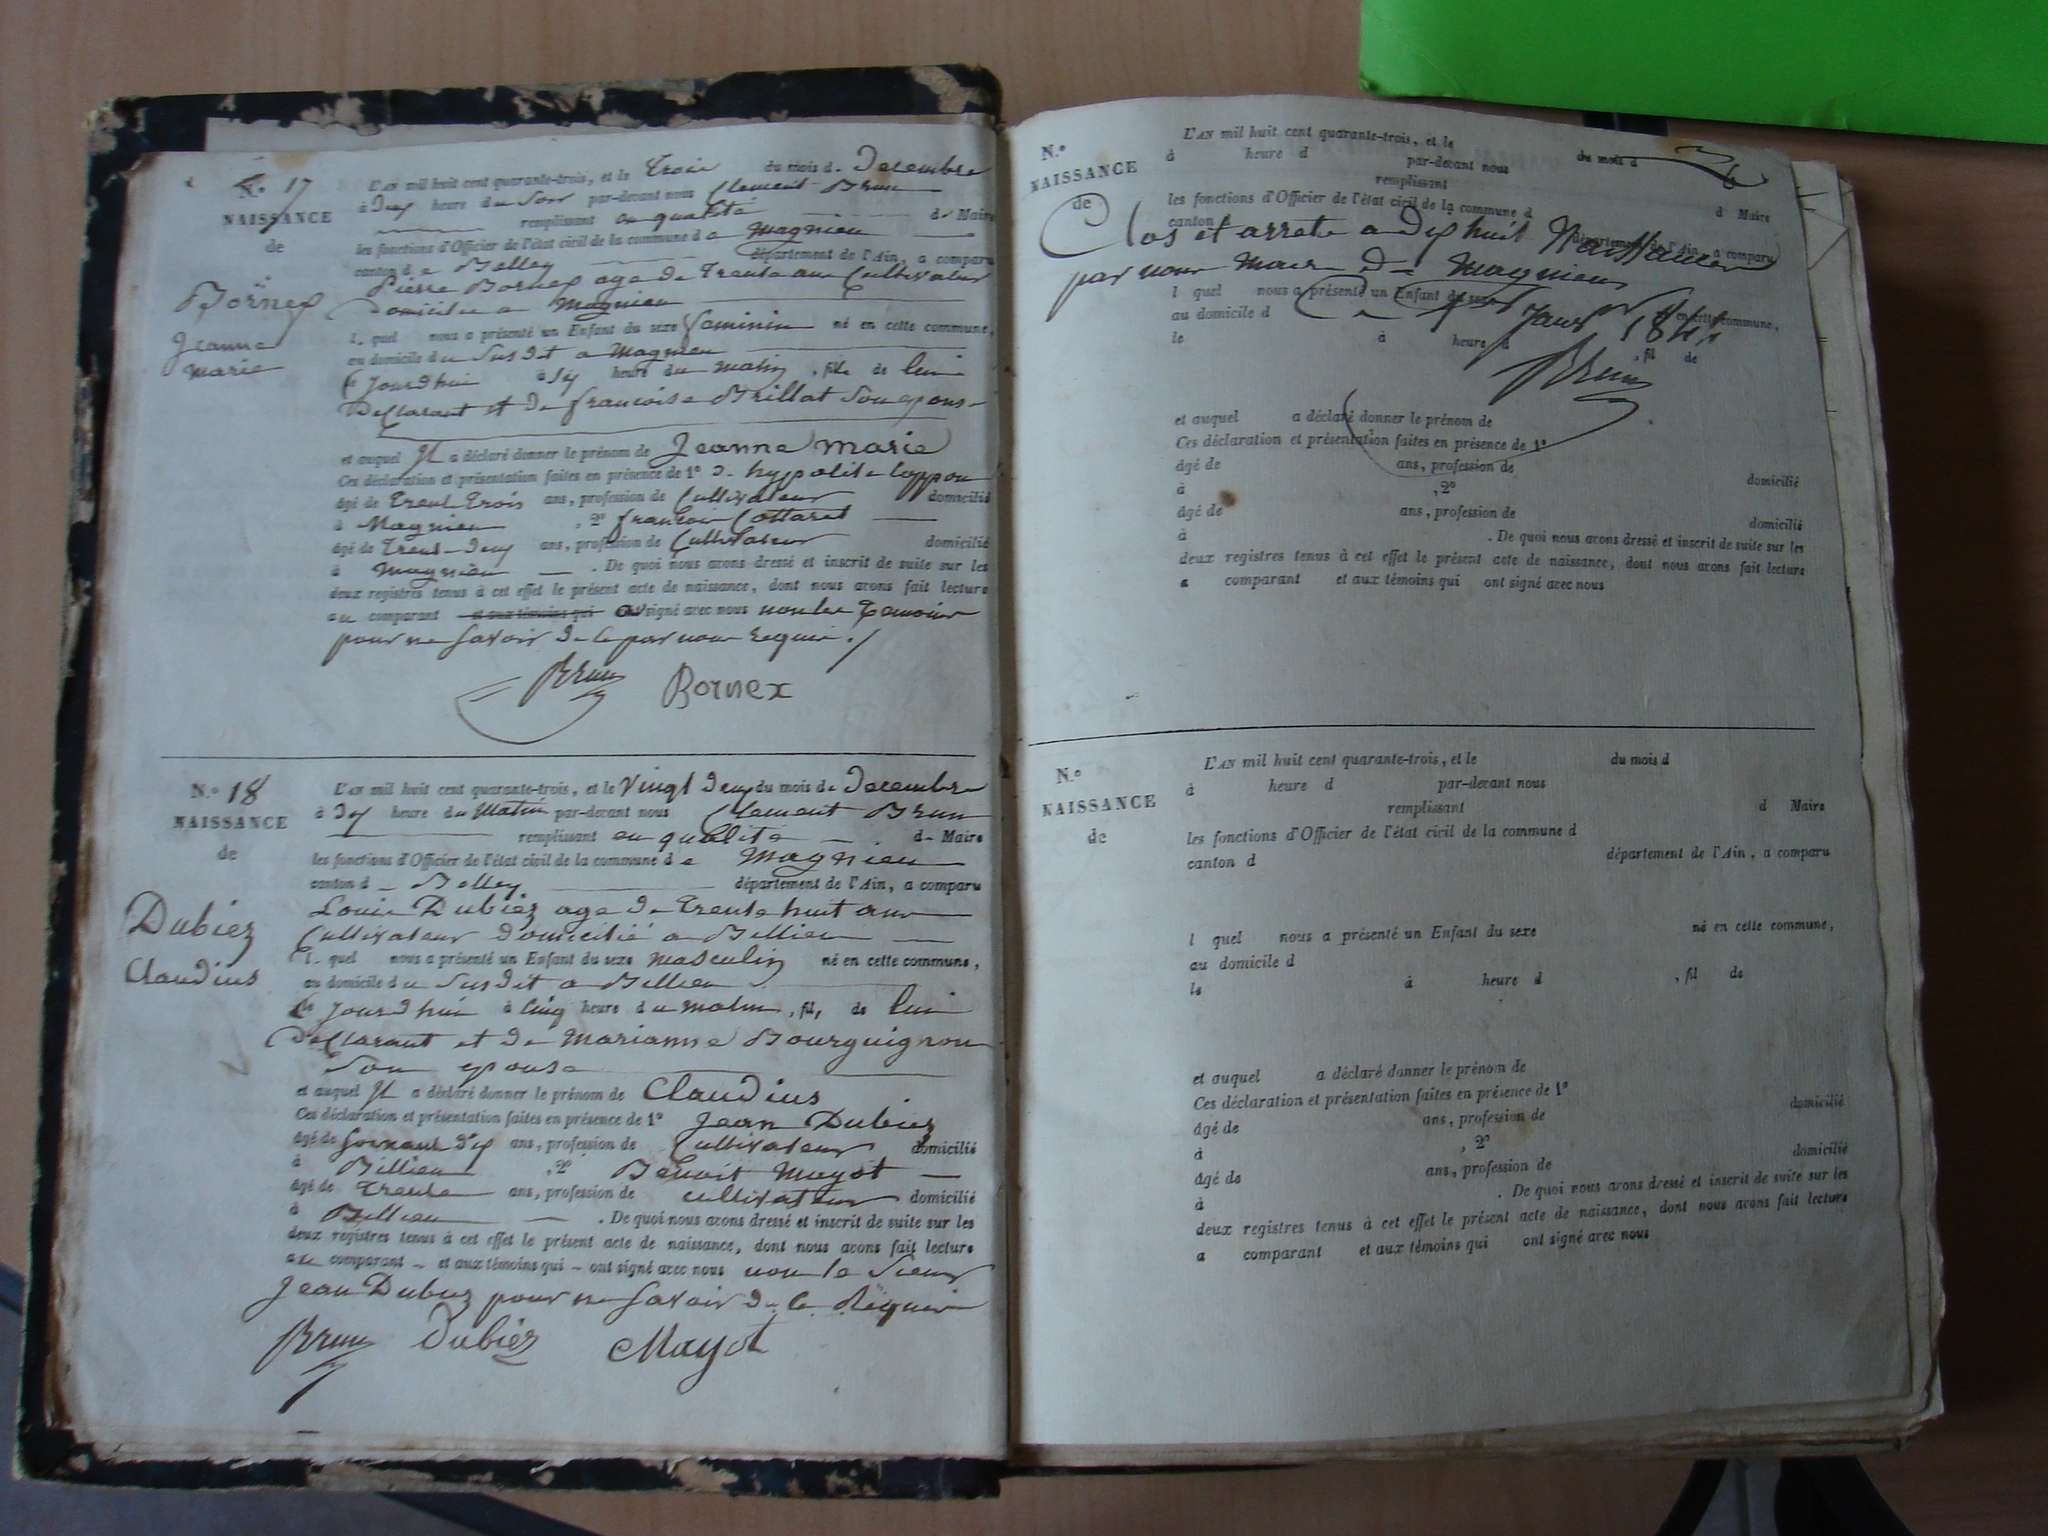 N.º 17
NAISSANCE
de
Bornex
Jeanne
marie
L'AN mil huit cent quarante-trois, et le Trois du mois de Decembre
à Dix heure du Soir par-devant nous Clement Brun
remplissant en qualité de Maire
les fonctions d'Officier de l'état civil de la commune de Magnieu
canton de Belley département de l'Ain, a comparu
Pierre Bornex age de Trente ans Cultivateur
Domicilie a Magnieu
l. quel nous a présenté un Enfant du sexe feminin né en cette commune,
au domicile du Susdit a Magnieu
le jourdhui à six heure du matin, fille de lui
Declarant et de francoise Brillat Son epouse
et auquel Il a déclaré donner le prénom de Jeanne marie
Ces déclaration et présentation faites en présence de 1º d. hypolite
âgé de Trent Trois ans, profession de Cultivateur domicilié
à Magnieu, 2º francois Cottaret
âgé de Trent-deux ans, profession de Cultivateur domicilié
à Magnieu. De quoi nous avons dressé et inscrit de suite sur les
deux registres tenus à cet effet le présent acte de naissance, dont nous avons fait lecture
au comparant et aux témoins qui ont signé avec nous non les Temoins
pour ne Savoir de ce par nous requis./
Brun Bornex
N.º 18
NAISSANCE
de
Dubiez
Claudius
L'AN mil huit cent quarante-trois, et le Vingt deux du mois de Decembre
à Dix heure du Matin par-devant nous Clement Brun
remplissant en qualité de Maire
les fonctions d'Officier de l'état civil de la commune de Magnieu
canton d Belley département de l'Ain, a comparu
Louis Dubiez age de Trente huit ans
Cultivateur domicilié a Billieu
l. quel nous a présenté un Enfant du sexe masculin né en cette commune,
au domicile du Susdit a Billieu
le jourdhui à Cinq heure du matin, fils de lui
Declarant et de Marianne Bourguignon
Son epouse
et auquel Il a déclaré donner le prénom de Claudius
Ces déclaration et présentation faites en présence de 1º Jean Dubiez
âgé de Soixante dix ans, profession de Cultivateur domicilié
à Billieu, 2º Benoit Mayot
âgé de Trente ans, profession de cultivateur domicilié
à Billieu. De quoi nous avons dressé et inscrit de suite sur les
deux registres tenus à cet effet le présent acte de naissance, dont nous avons fait lecture
au comparant et aux témoins qui ont signé avec nous non le Sieur
Jean Dubiez pour ne Savoir de ce Requis
Brun Dubiez Mayot
N.º
NAISSANCE
de
L'AN mil huit cent quarante-trois, et le du mois d
à heure d par-devant nous
remplissant d Maire
les fonctions d'Officier de l'état civil de la commune d
canton d département de l'Ain, a comparu
Clos et arrete a dix huit Naissances
par nous Maire de Magnieu
l quel nous a présenté un Enfant du sexe né en cette commune,
Ce 1er Janv 1844
au domicile d
le à heure d, fil de
Brun
et auquel a déclaré donner le prénom de
Ces déclaration et présentation faites en présence de 1º
âgé de ans, profession de domicilié
à, 2º
âgé de ans, profession de domicilié
à. De quoi nous avons dressé et inscrit de suite sur les
deux registres tenus à cet effet le présent acte de naissance, dont nous avons fait lecture
a comparant et aux témoins qui ont signé avec nous
N.º
NAISSANCE
de
L'AN mil huit cent quarante-trois, et le du mois d
à heure d par-devant nous
remplissant d Maire
les fonctions d'Officier de l'état civil de la commune d
canton d département de l'Ain, a comparu
l quel nous a présenté un Enfant du sexe né en cette commune,
au domicile d
le à heure d, fil de
et auquel a déclaré donner le prénom de
Ces déclaration et présentation faites en présence de 1º
âgé de ans, profession de domicilié
à, 2º
âgé de ans, profession de domicilié
à. De quoi nous avons dressé et inscrit de suite sur les
deux registres tenus à cet effet le présent acte de naissance, dont nous avons fait lecture
a comparant et aux témoins qui ont signé avec nous